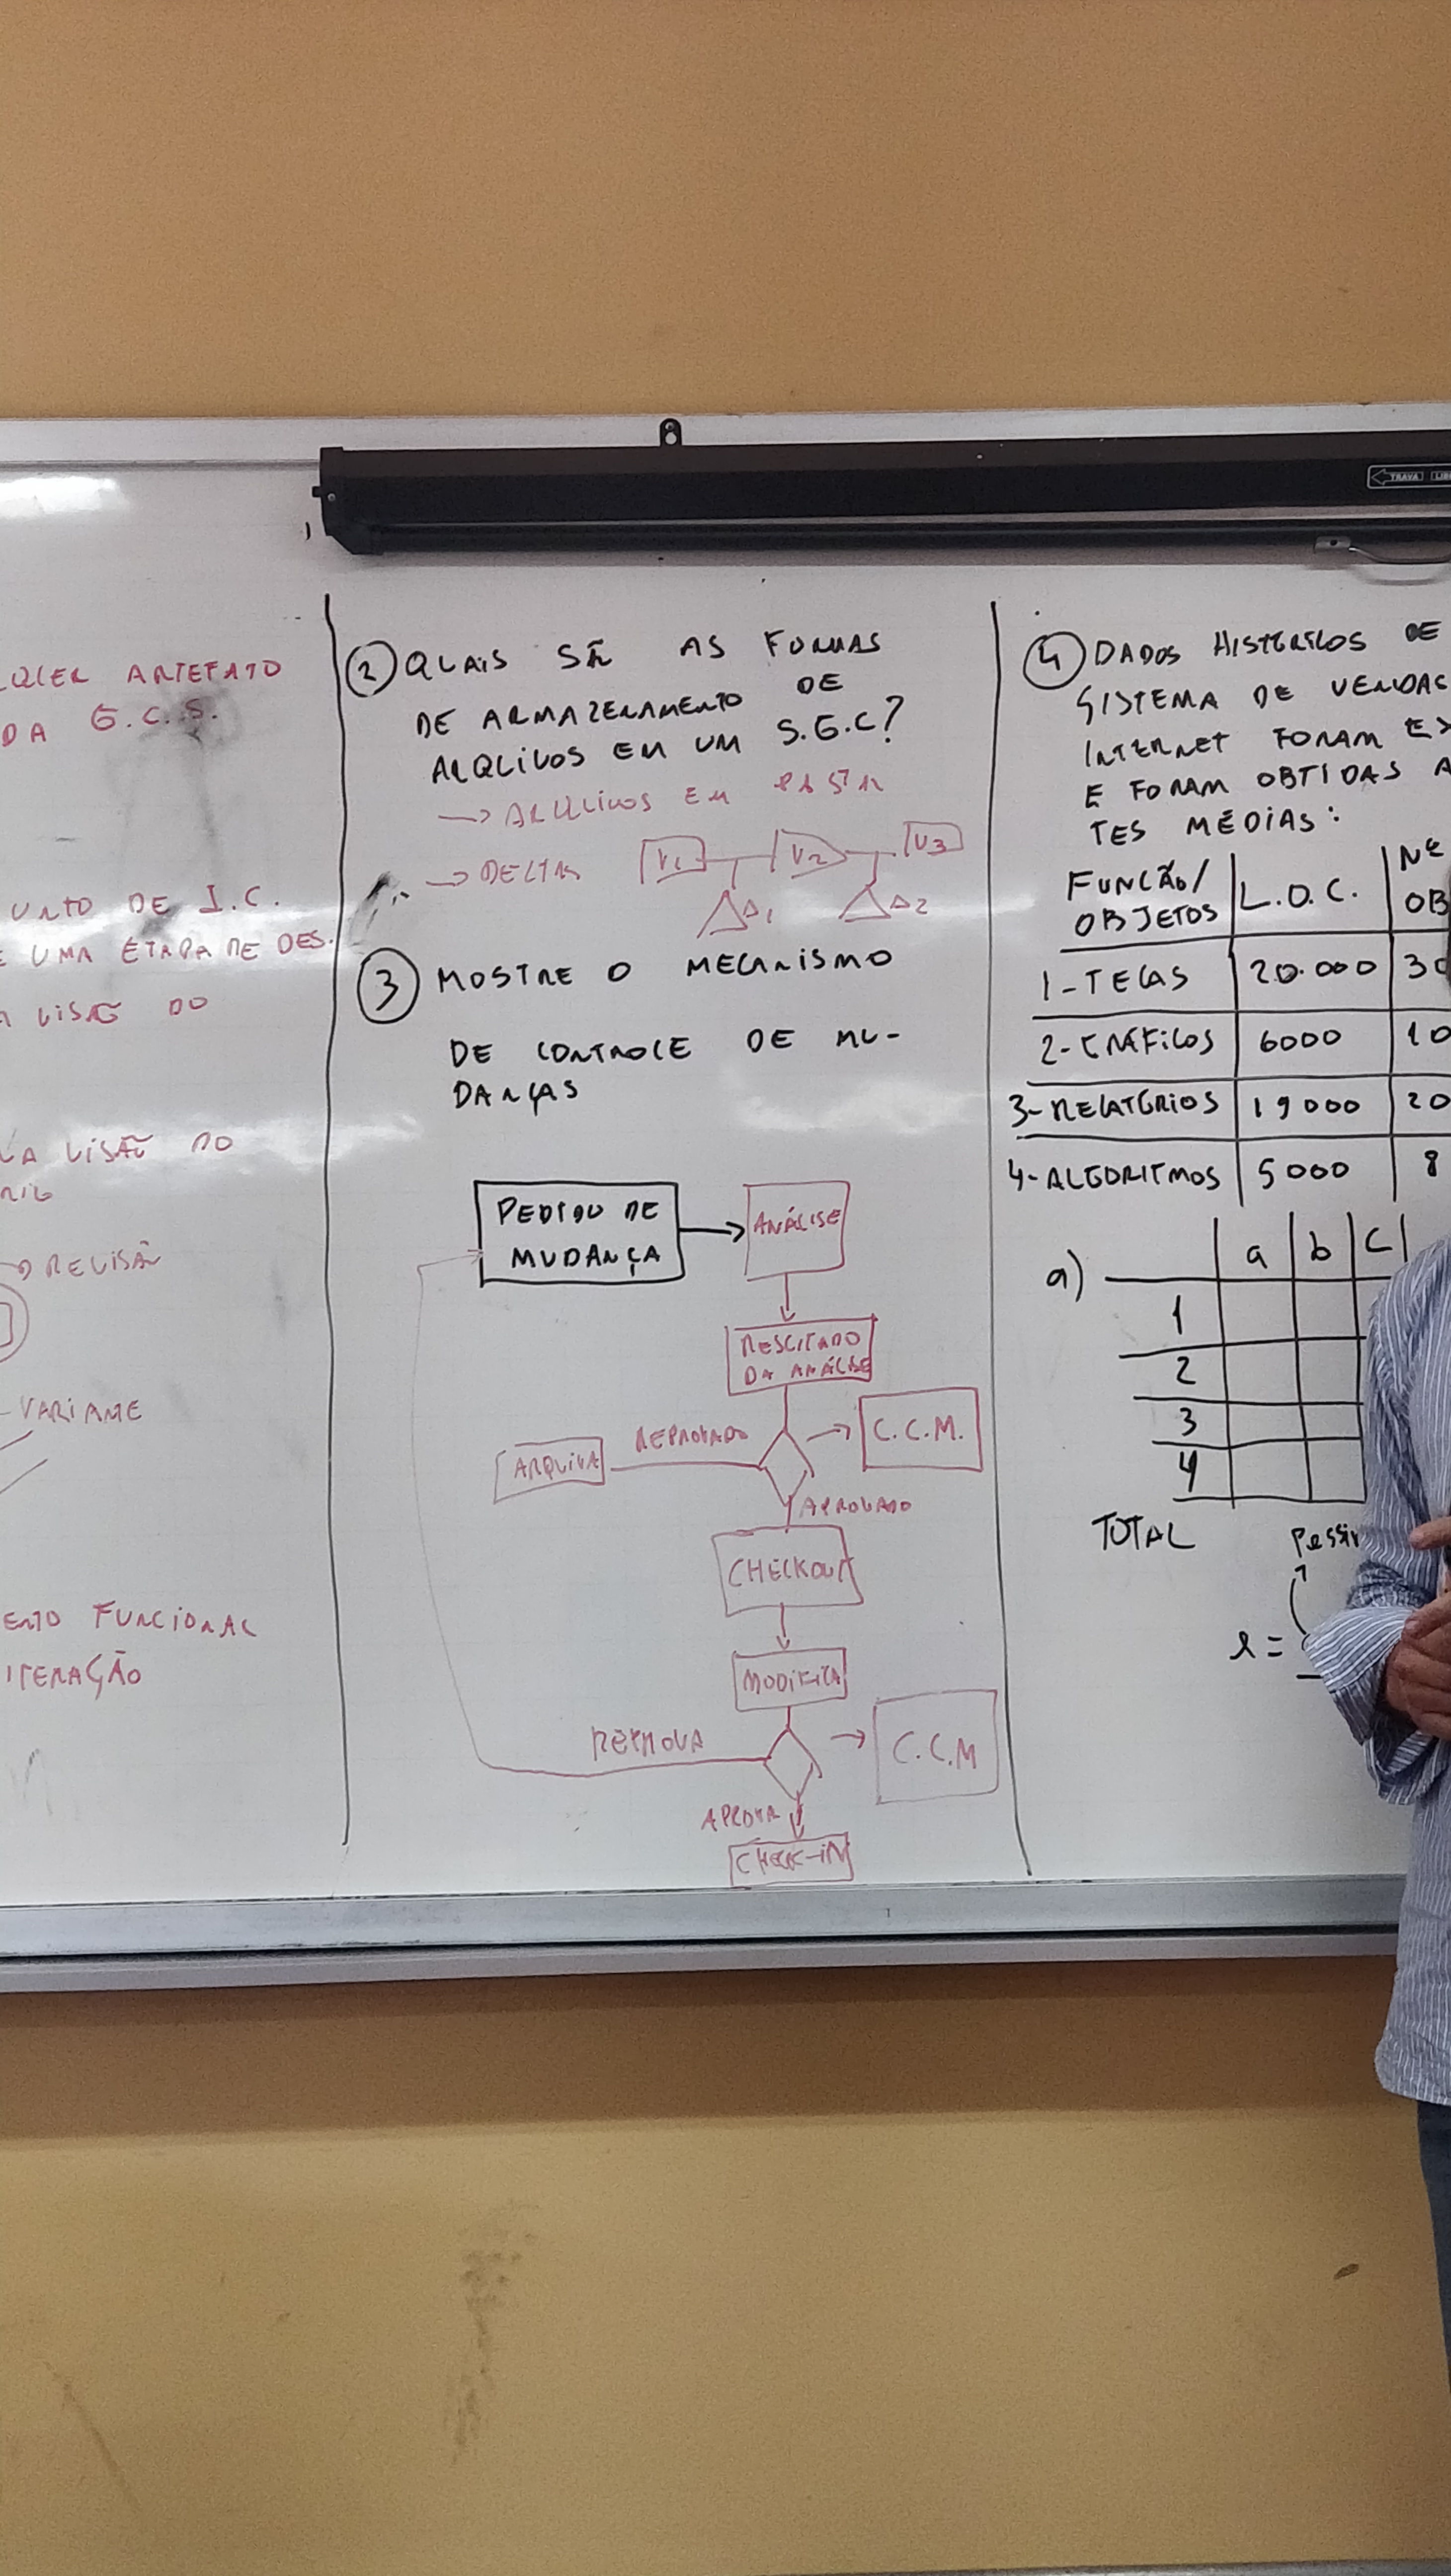 TRAVA
ARTEFATO
DA G.C.S.
DE I.C.
UMA ETAPA DE DES.
VISÃO DO
VISÃO DO
REVISÃO
VARIANTE
FUNCIONAL
ITERAÇÃO
② QUAIS SÃO AS FORMAS
DE ARMAZENAMENTO DE
ARQUIVOS EM UM S.G.C?
→ ARQUIVOS EM
→ DELTAS V1 V2 V3
Δ1 Δ2
③ MOSTRE O MECANISMO
DE CONTROLE DE MU-
DANÇAS
PEDIDO DE
MUDANÇA
ANÁLISE
RESULTADO
DA ANÁLISE
REPROVADO
C.C.M.
ARQUIVA
APROVADO
CHECKOUT
MODIFICA
REPROVA
C.C.M
APROVA
CHECK-IN
④ DADOS HISTÓRICOS DE
SISTEMA DE VENDAS
INTERNET FORAM
E FORAM OBTIDAS A
TES MÉDIAS:
FUNÇÃO/
OBJETOS L.O.C. Nº
OB
1-TELAS 20.000 30
2-GRÁFICOS 6000 10
3-RELATÓRIOS 19000 20
4-ALGORITMOS 5000 8
a) a b c
1
2
3
4
TOTAL